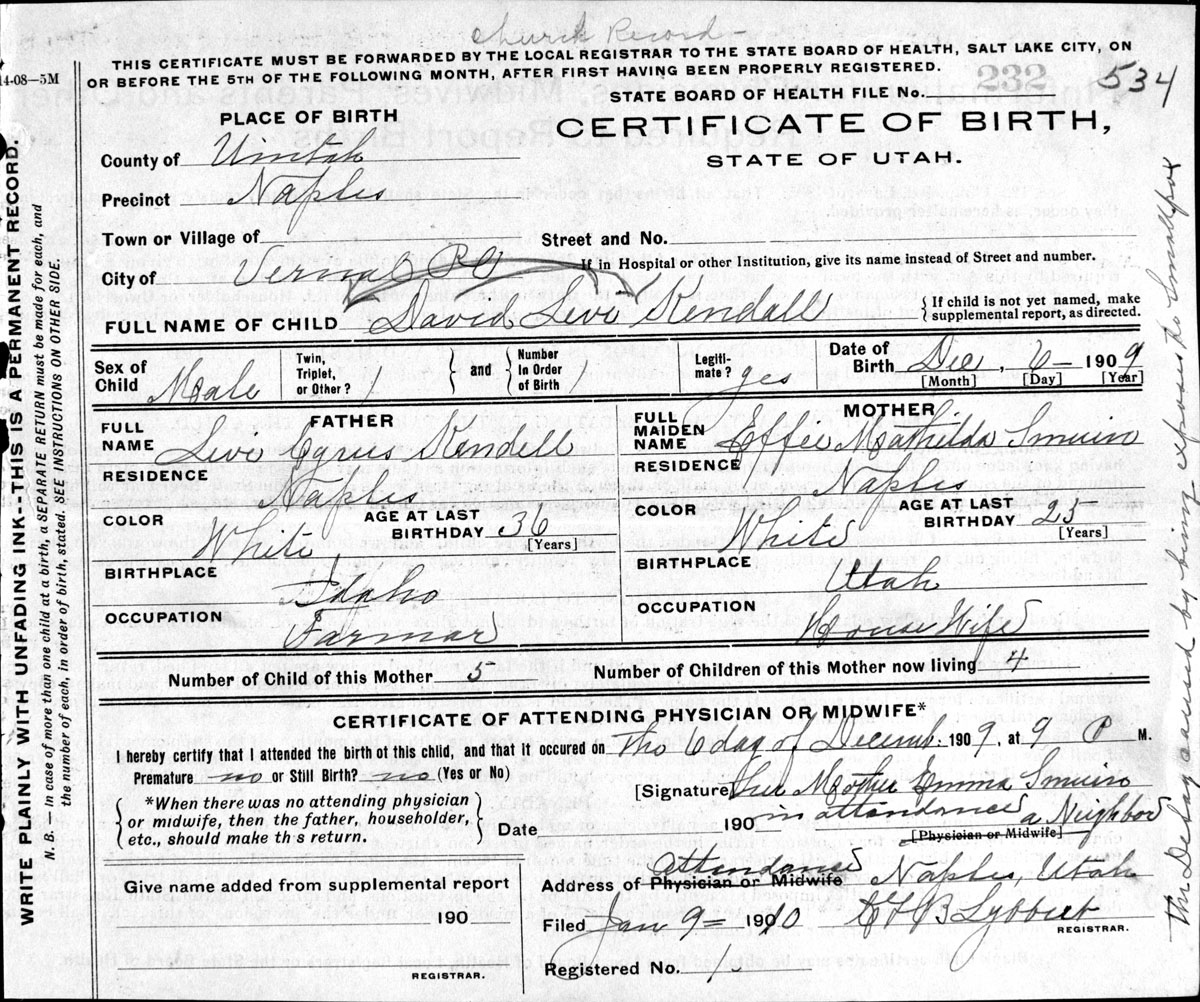 Church Record -
THIS CERTIFICATE MUST BE FORWARDED BY THE LOCAL REGISTRAR TO THE STATE BOARD OF HEALTH, SALT LAKE CITY, ON
OR BEFORE THE 5TH OF THE FOLLOWING MONTH, AFTER FIRST HAVING BEEN PROPERLY REGISTERED.
14-08—5M
232
534
STATE BOARD OF HEALTH FILE No.
PLACE OF BIRTH
CERTIFICATE OF BIRTH,
STATE OF UTAH.
County of Uintah
Precinct Naples
Town or Village of
Street and No.
City of Vernal P O
If in Hospital or other Institution, give its name instead of Street and number.
FULL NAME OF CHILD David Levi Kendall
{ If child is not yet named, make
supplemental report, as directed.
Sex of Child Male
Twin, Triplet, or Other?
and
Number In Order of Birth
Legiti- mate? yes
Date of Birth Dec, 6 — 1909
[Month] [Day] [Year]
FATHER
FULL NAME Levi Cyrus Kendell
RESIDENCE Naples
COLOR White
AGE AT LAST BIRTHDAY 36 [Years]
BIRTHPLACE Idaho
OCCUPATION Farmar
MOTHER
FULL MAIDEN NAME Effie Mathilda Smuin
RESIDENCE Naples
COLOR White
AGE AT LAST BIRTHDAY [Years]
BIRTHPLACE Utah
OCCUPATION House Wife
Number of Child of this Mother 5
Number of Children of this Mother now living 4
CERTIFICATE OF ATTENDING PHYSICIAN OR MIDWIFE*
I hereby certify that I attended the birth of this child, and that it occured on Tho 6 day of Decemb: 1909, at 9 M.
Premature no or Still Birth? no (Yes or No)
{ *When there was no attending physician
or midwife, then the father, householder,
etc., should make th s return. }
[Signature] her Mother Emma Smuin
in attendance a Neighbor
Date 190
[Physician or Midwife]
Give name added from supplemental report
190
REGISTRAR.
Attendance
Address of Physician or Midwife Naples, Utah
Filed Jan 9 = 1910
Lybbert
REGISTRAR.
Registered No. 1
WRITE PLAINLY WITH UNFADING INK--THIS IS A PERMANENT RECORD.
N. B. — In case of more than one child at a birth, a SEPARATE RETURN must be made for each, and
the number of each, in order of birth, stated. SEE INSTRUCTIONS ON OTHER SIDE.
this Delay caused by being exposes to Smallpox